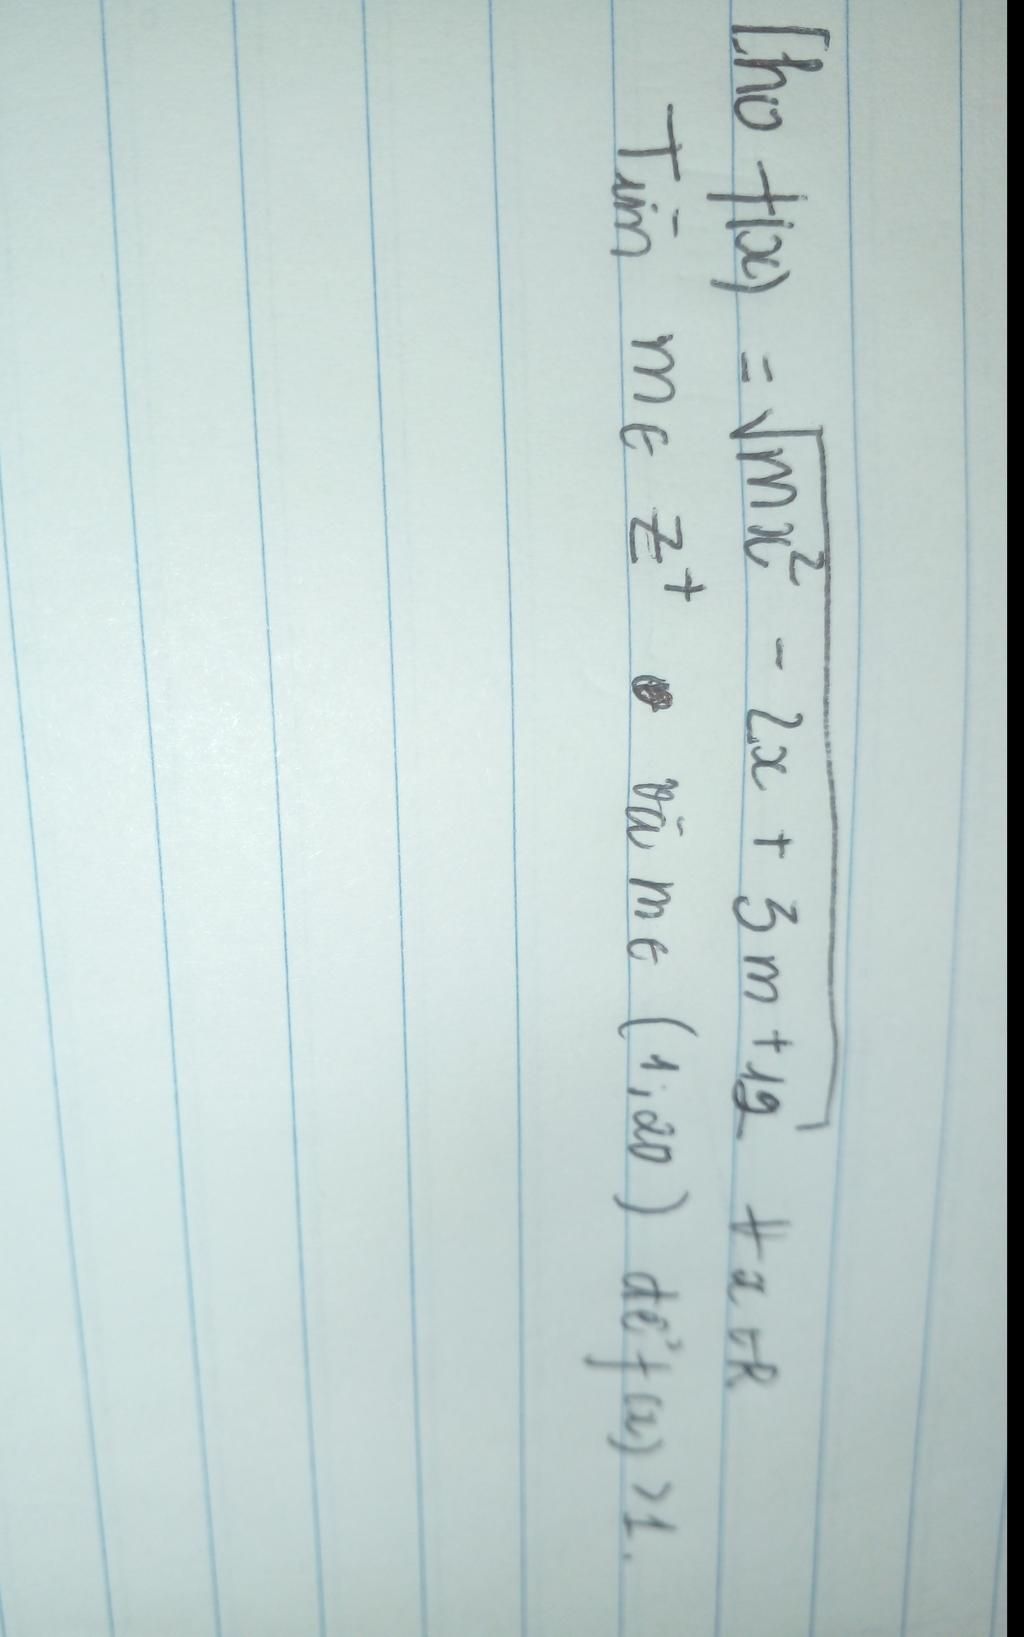 Cho f(x) = √(mx² - 2x + 3m + 19) ∀x ∈ R
Tìm m ∈ Z⁺ và m ∈ (1; 20) để f(x) > 1.